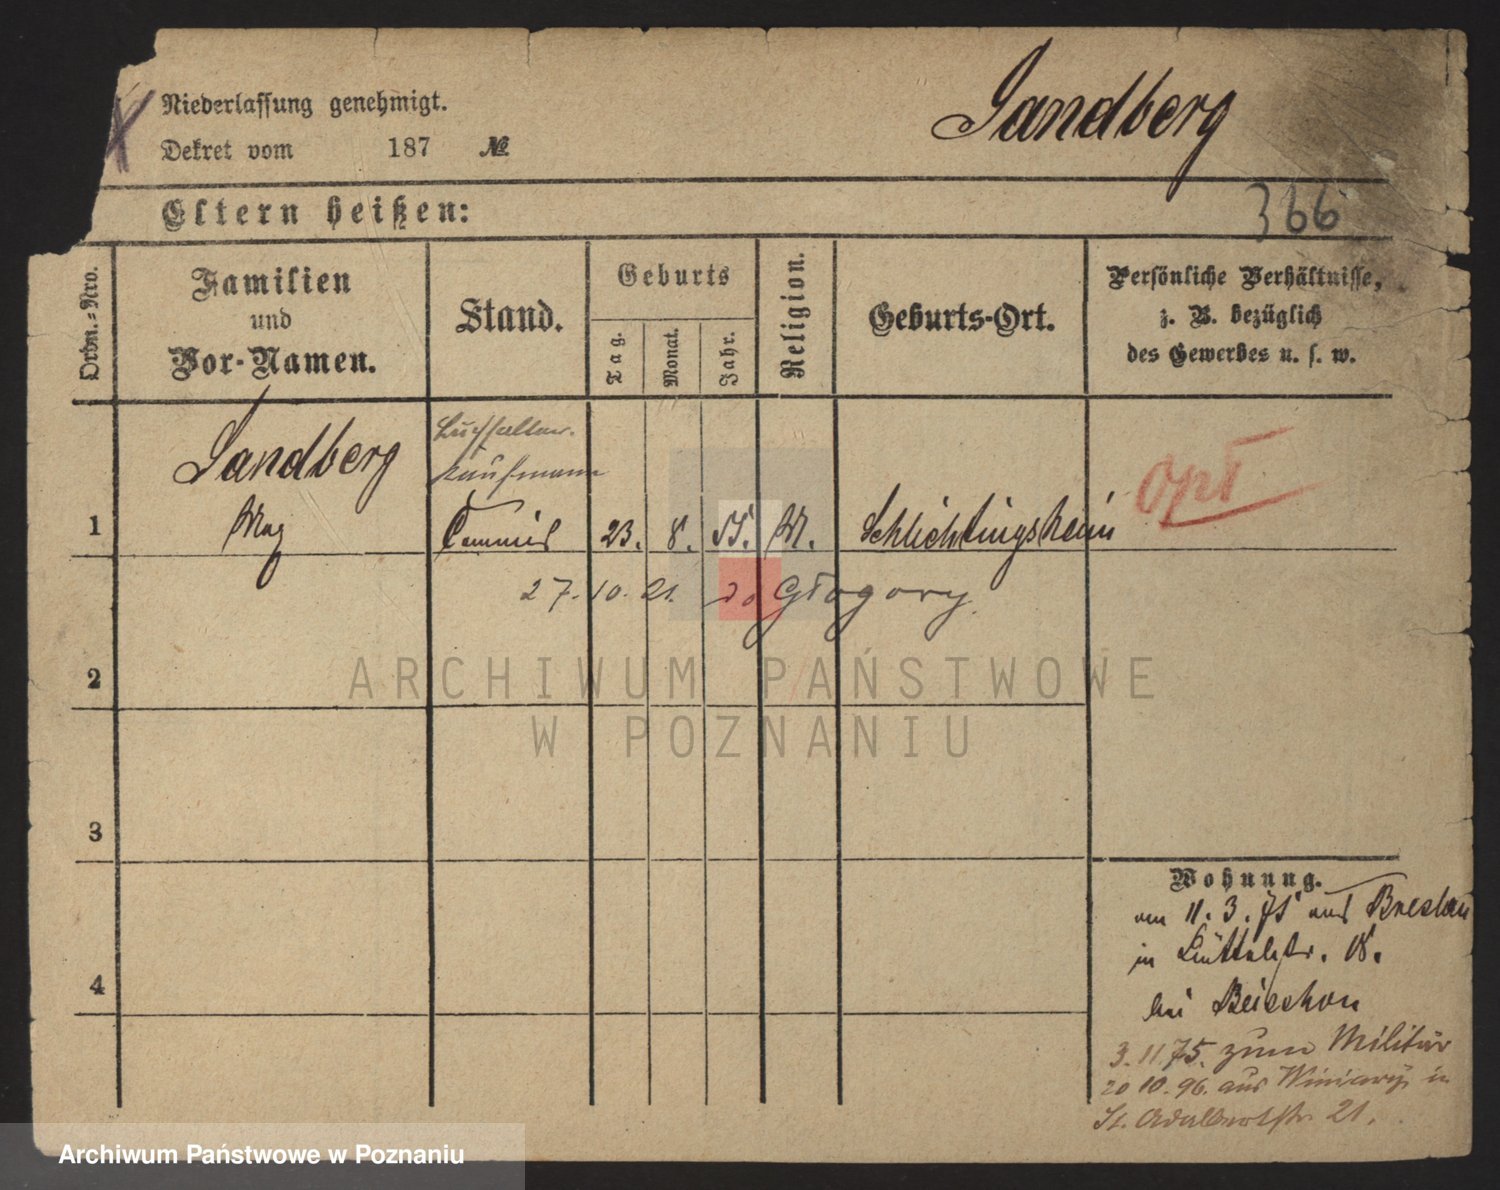 Niederlassung genehmigt.
Dekret vom 187 №
Sandberg
Eltern heißen:
366
Ordn.-Nro.
Familien
und
Vor-Namen.
Stand.
Geburts
Tag.
Monat.
Jahr.
Religion.
Geburts-Ort.
Persönliche Verhältnisse,
z. B. bezüglich
des Gewerbes u. s. w.
Sandberg
Buchhalter.
Kaufmann
opt
1 Max Commis 23. 8. M. Schlichtingsheim
27. 10. 21. do Głogowy.
2
3
4
Wohnung.
am 11. 3. 75 aus Breslau
in 18.
bei
3. 11. 75. zum Militär
20 10. 96. aus Winiary in
St. Adalbertstr. 21.
ARCHIWUM PAŃSTWOWE
W POZNANIU
Archiwum Państwowe w Poznaniu